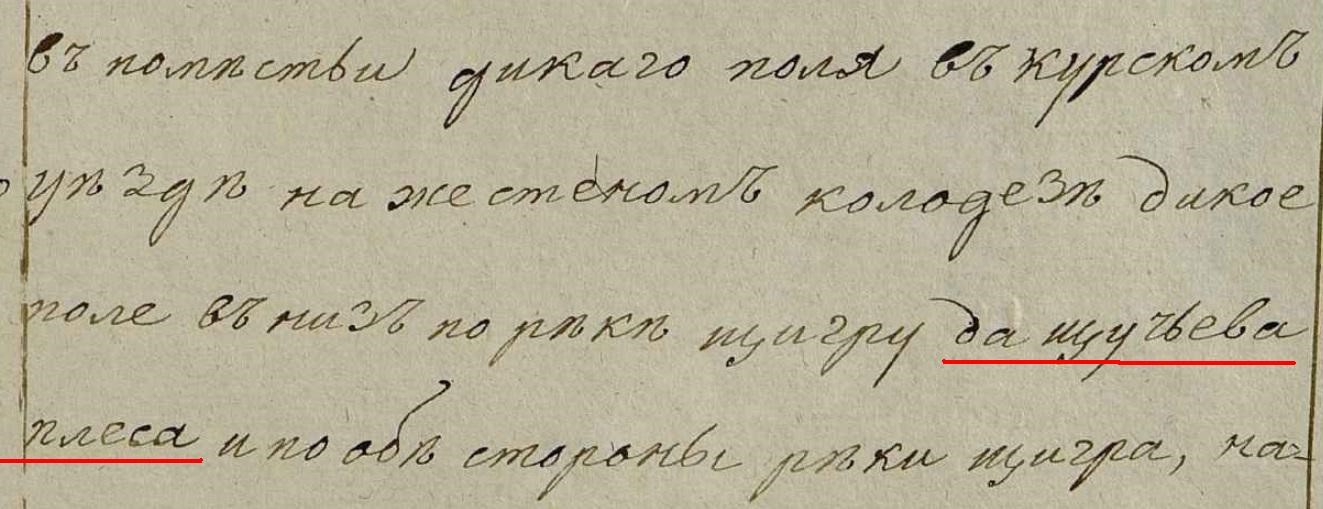 въ помѣстьи дикаго поля въ курскомъ
уѣздѣ на жестеномъ колодезѣ дикое
поле въ низъ по рѣкѣ щигру да щучьева
плеса и по обѣ стороны рѣки щигра, на=